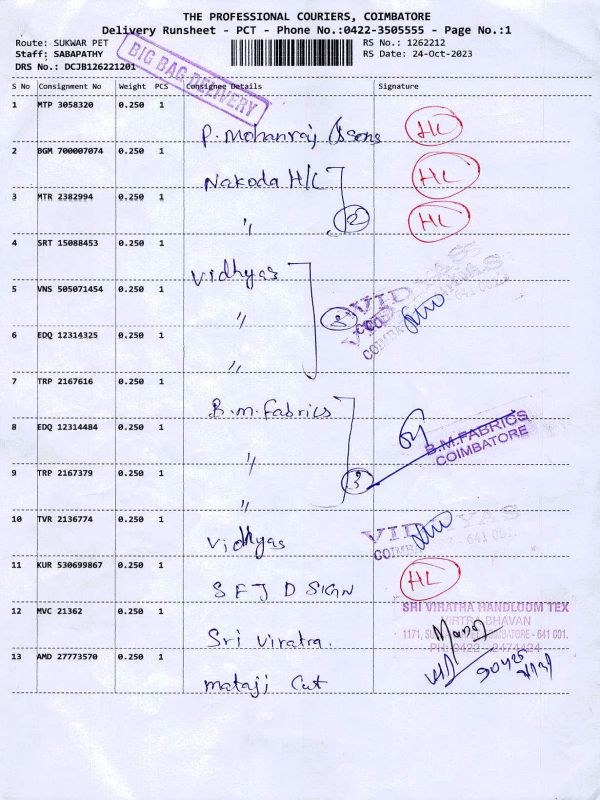 THE PROFESSIONAL COURIERS, COIMBATORE
Delivery Runsheet - PCT - Phone No.:0422-3505555 - Page No.:1
Route: SUKWAR PET RS No.: 1262212
Staff: SABAPATHY RS Date: 24-Oct-2023
DRS No.: DCJB126221201
BIG BAG DELIVERY
S No Consignment No Weight PCS Consignee Details Signature
1 MTP 3058320 0.250 1
P. Mohanraj & sons HL
2 BGM 700007074 0.250 1
Nakoda H/L HL
3 MTR 2382994 0.250 1
" 2 HL
4 SRT 15088453 0.250 1
Vidhyas
5 VNS 505071454 0.250 1
" 3 VIDHYAS
6 EDQ 12314325 0.250 1
"
7 TRP 2167616 0.250 1
B.M. Fabrics
8 EDQ 12314484 0.250 1
" B.M.FABRICS
COIMBATORE
9 TRP 2167379 0.250 1
" 3
10 TVR 2136774 0.250 1
Vidhyas VIDHYAS
- 641 001.
11 KUR 530699867 0.250 1
S F J D SIGN HL
12 MVC 21362 0.250 1
Sri Viratra.
SRI VIRATRA HANDLOOM TEX
BHAVAN
1171, COIMBATORE - 641 001.
PH: 0422 - 2474424
13 AMD 27773570 0.250 1
mataji Cut